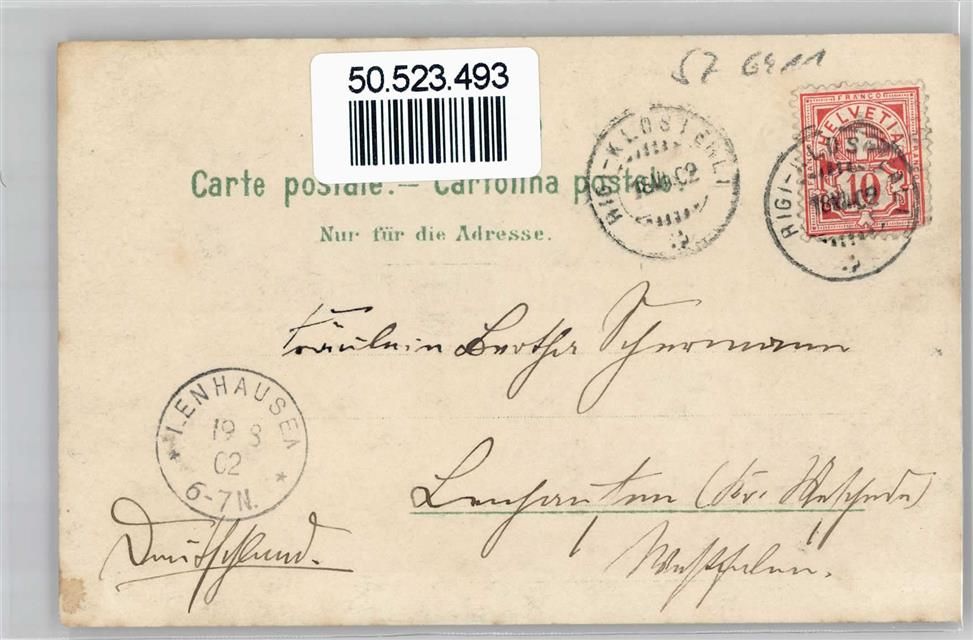 50.523.493
57 6411
FRANCO
HELVETIA
10
RIGI-KLÖSTERLI
18.VIII.02
RIGI-KLÖSTERLI
18.VIII.02
Carte postale. — Cartolina postale.
Nur für die Adresse.
Fräulein Bertha Schürmann
LENHAUSEN
19 8
02
6-7N.
Lenhausen (Kr. Meschede)
Westfalen.
Deutschland.